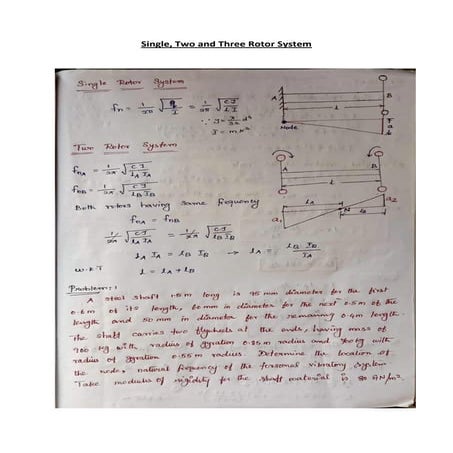 Single, Two and Three Rotor System
Single Rotor System
fn = 1/2π √q/I = 1/2π √CJ/lI
∵ J = π/32 d⁴
I = mk²
A B
l
Node
a
Two Rotor System
fnA = 1/2π √CJ/lA IA
fnB = 1/2π √CJ/lB IB
Both rotors having same frequency
fnA = fnB
1/2π √CJ/lA IA = 1/2π √CJ/lB IB
lA IA = lB IB → lA = lB IB/IA
W.K.T l = lA + lB
A B
l
a1 lA N lB a2
Problem: 1
A steel shaft 1.5 m long is 95 mm diameter for the first
0.6 m of its length, 60 mm in diameter for the next 0.5 m of the
length and 50 mm in diameter for the remaining 0.4 m length.
The shaft carries two flywheels at the ends, having mass of
900 kg with radius of gyration 0.85 m radius and 700 kg with
radius of gyration 0.55 m radius. Determine the location of
the node, natural frequency of the torsional vibratory system
Take modulus of rigidity for the shaft material is 80 GN/m².